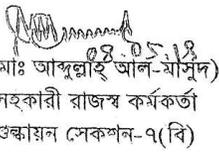 ০৪.০৫.১৪
মোঃ আব্দুল্লাহ আল-মাসুদ)
সহকারী রাজস্ব কর্মকর্তা
শুল্কায়ন সেকশন-৭(বি)